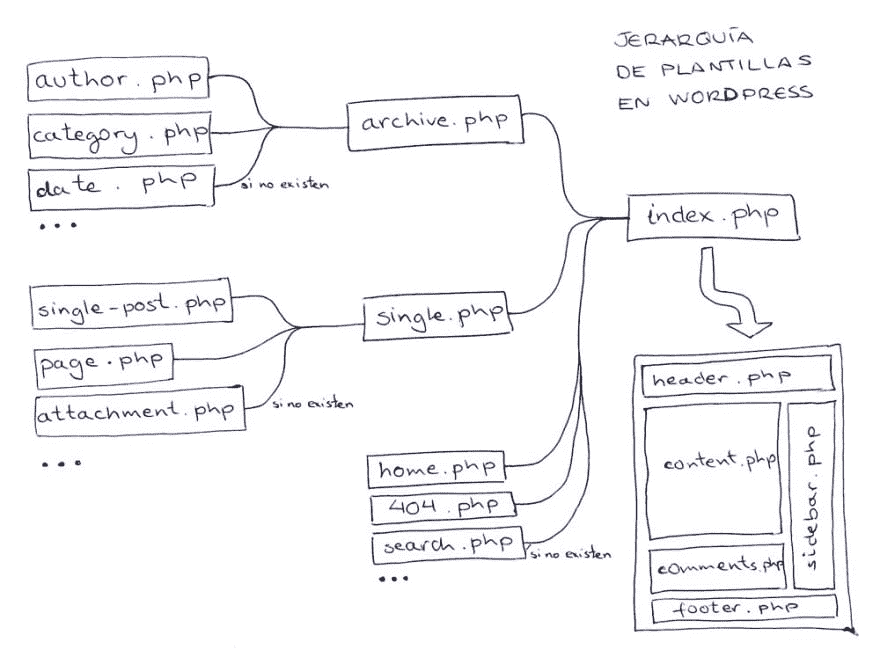 JERARQUÍA
DE PLANTILLAS
EN WORDPRESS
author.php
category.php
date.php
si no existen
...
archive.php
single-post.php
page.php
attachment.php
si no existen
...
single.php
home.php
404.php
search.php
si no existen
...
index.php
header.php
content.php
sidebar.php
comments.php
footer.php